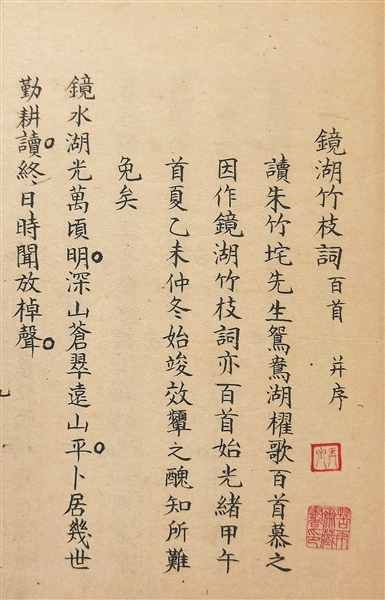 鏡湖竹枝詞百首 并序
讀朱竹垞先生鴛鴦湖櫂歌百首慕之
因作鏡湖竹枝詞亦百首始光緒甲午
首夏乙未仲冬始竣效顰之醜知所難
免矣
鏡水湖光萬頃明深山蒼翠遠山平卜居幾世
勤耕讀終日時聞放棹聲